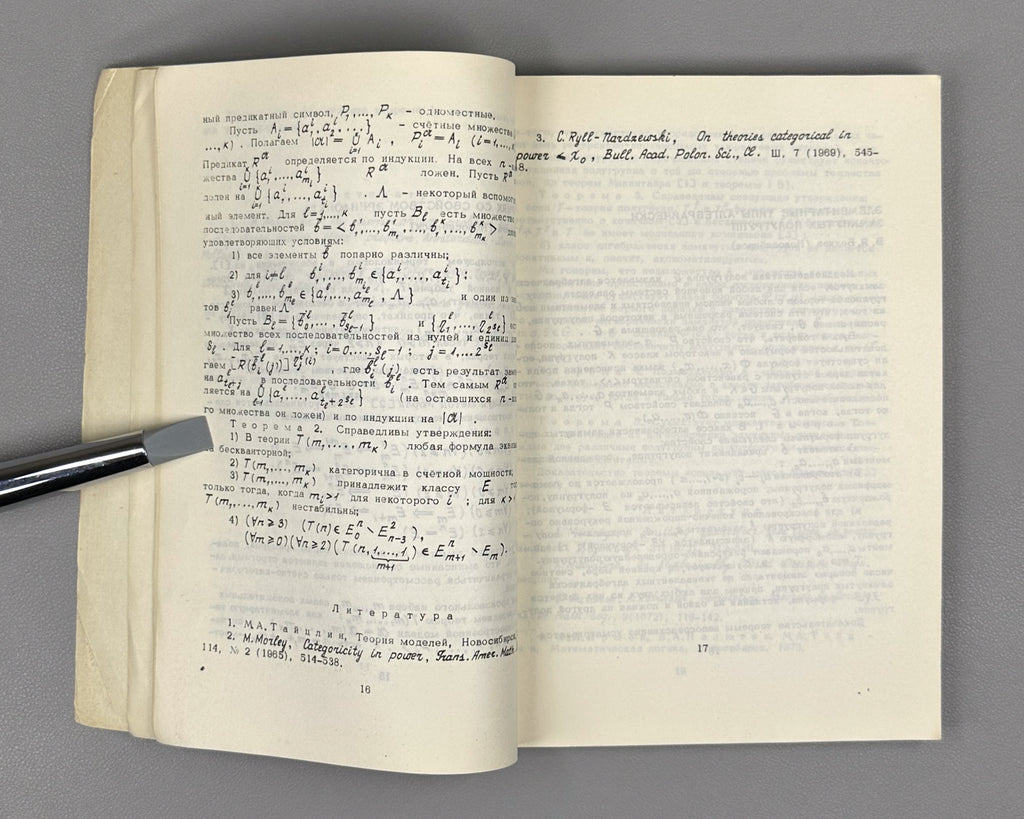 ный предикатный символ, P₁,..., Pₖ – одноместные,
Пусть Aᵢ = {a₁ⁱ, a₂ⁱ, ...} – счётные множества
...,к). Полагаем |𝔞| = ⋃ᵢ₌₁ Aᵢ, Pᵢ^𝔞 = Aᵢ (i=1,...,
Предикат R^𝔞 определяется по индукции. На всех n-
жества ⋃ᵢ₌₁ {a₁ⁱ,...,a_{mᵢ}ⁱ} R^𝔞 ложен. Пусть R^𝔞
делен на ⋃ᵢ₌₁ {a₁ⁱ,...,a_{tᵢ}ⁱ}. Λ – некоторый
ный элемент. Для l=1,...,к пусть B_l есть множество
последовательностей b̄ = <b₁¹,...,b_{m₁}¹,...,b₁ᵏ,...,b_{mₖ}ᵏ>
удовлетворяющих условиям:
1) все элементы b̄ попарно различны;
2) для i≠l b₁ⁱ,...,b_{mᵢ}ⁱ ∈ {a₁ⁱ,...,a_{tᵢ}ⁱ};
3) b₁ˡ,...,b_{m_l}ˡ ∈ {a₁ˡ,...,a_{t_l}ˡ, Λ} и один из
тов bᵢˡ равен Λ.
Пусть B_l = {b̄₀ˡ,...,b̄_{s_l-1}ˡ} и {η₁ˡ,...,η_{2^{s_l}}ˡ}
множество всех последовательностей из нулей и единиц
s_l. Для l=1,...,к; i=0,...,s_l-1; j=1,...2^{s_l}
гаем [R(b̄ᵢˡ(j))]^{ηⱼˡ(i)}, где b̄ᵢˡ(j) есть результат
на a_{t_l+j}ˡ в последовательности b̄ᵢˡ. Тем самым R^𝔞
ляется на ⋃ₗ₌₁ {a₁ˡ,...,a_{t_l+2^{s_l}}ˡ} (на оставшихся n-
го множества он ложен) и по индукции на |𝔞|.
Теорема 2. Справедливы утверждения:
1) В теории T(m₁,...,mₖ) любая формула
на бескванторной;
2) T(m₁,...,mₖ) категорична в счётной мощности;
3) T(m₁,...,mₖ) принадлежит классу E
только тогда, когда mᵢ>1 для некоторого i; для к>
T(m₁,...,mₖ) нестабильны;
4) (∀n≥3) (T(n) ∈ E₀ⁿ ∖ E²ₙ₋₃),
(∀m≥0)(∀n≥2)(T(n,1,...,1) ∈ Eⁿₘ₊₁ ∖ Eₘ).
m+1
Литература
1. М.А.Тайцлин, Теория моделей, Новосибирск,
2. M.Morley, Categoricity in power, Trans. Amer. Math.
114, № 2 (1965), 514-538.
16
3. C. Ryll-Nardzewski, On theories categorical in
power ≤ χ₀, Bull. Acad. Polon. Sci., Cl. Ш, 7 (1969), 545-
8.
17